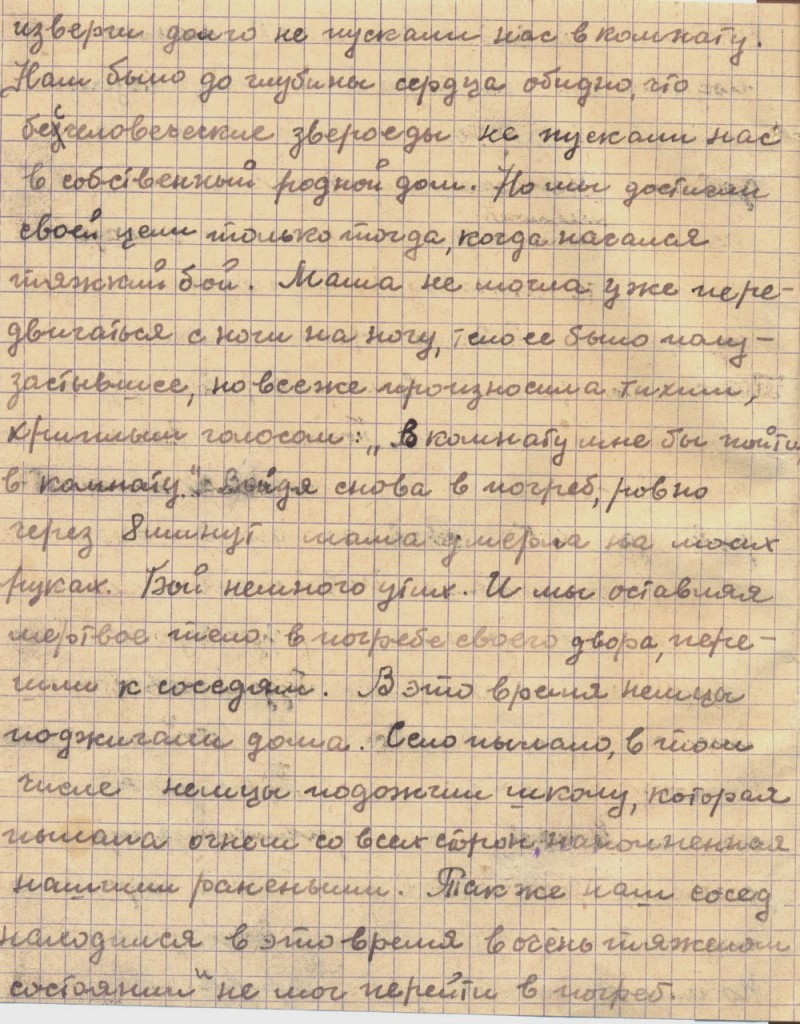 изверги долго не пускали нас в комнату.
Нам было до глубины сердца обидно, что
бесчеловеческие звероеды не пускали нас
в собственный родной дом. Но мы достигли
своей цели только тогда, когда начался
тяжкий бой. Мама не могла уже пере-
двигаться с ноги на ногу, тело ее было полу-
застывшее, но все же произносила тихим,
хриплым голосом: „в комнату мне бы пойти,
в комнату". Войдя снова в погреб, ровно
через 8 минут мама умерла на моих
руках. Бой немного утих. И мы оставляя
мертвое тело в погребе своего двора, пере-
шли к соседям. В это время немцы
поджигали дома. Село пылало, в том
числе немцы подожгли школу, которая
пылала огнем со всех сторон, наполненная
нашими ранеными. Также наш сосед
находился в это время в очень тяжелом
состоянии и не мог перейти в погреб.